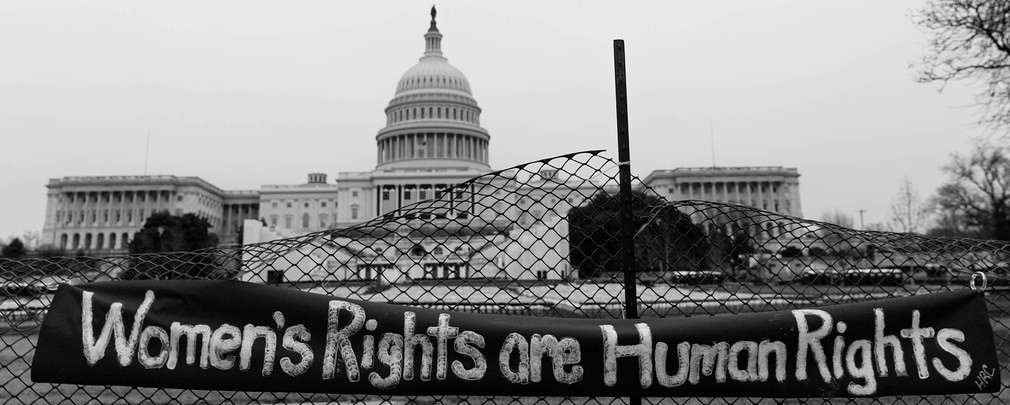 Women's Rights are Human Rights.
HRC